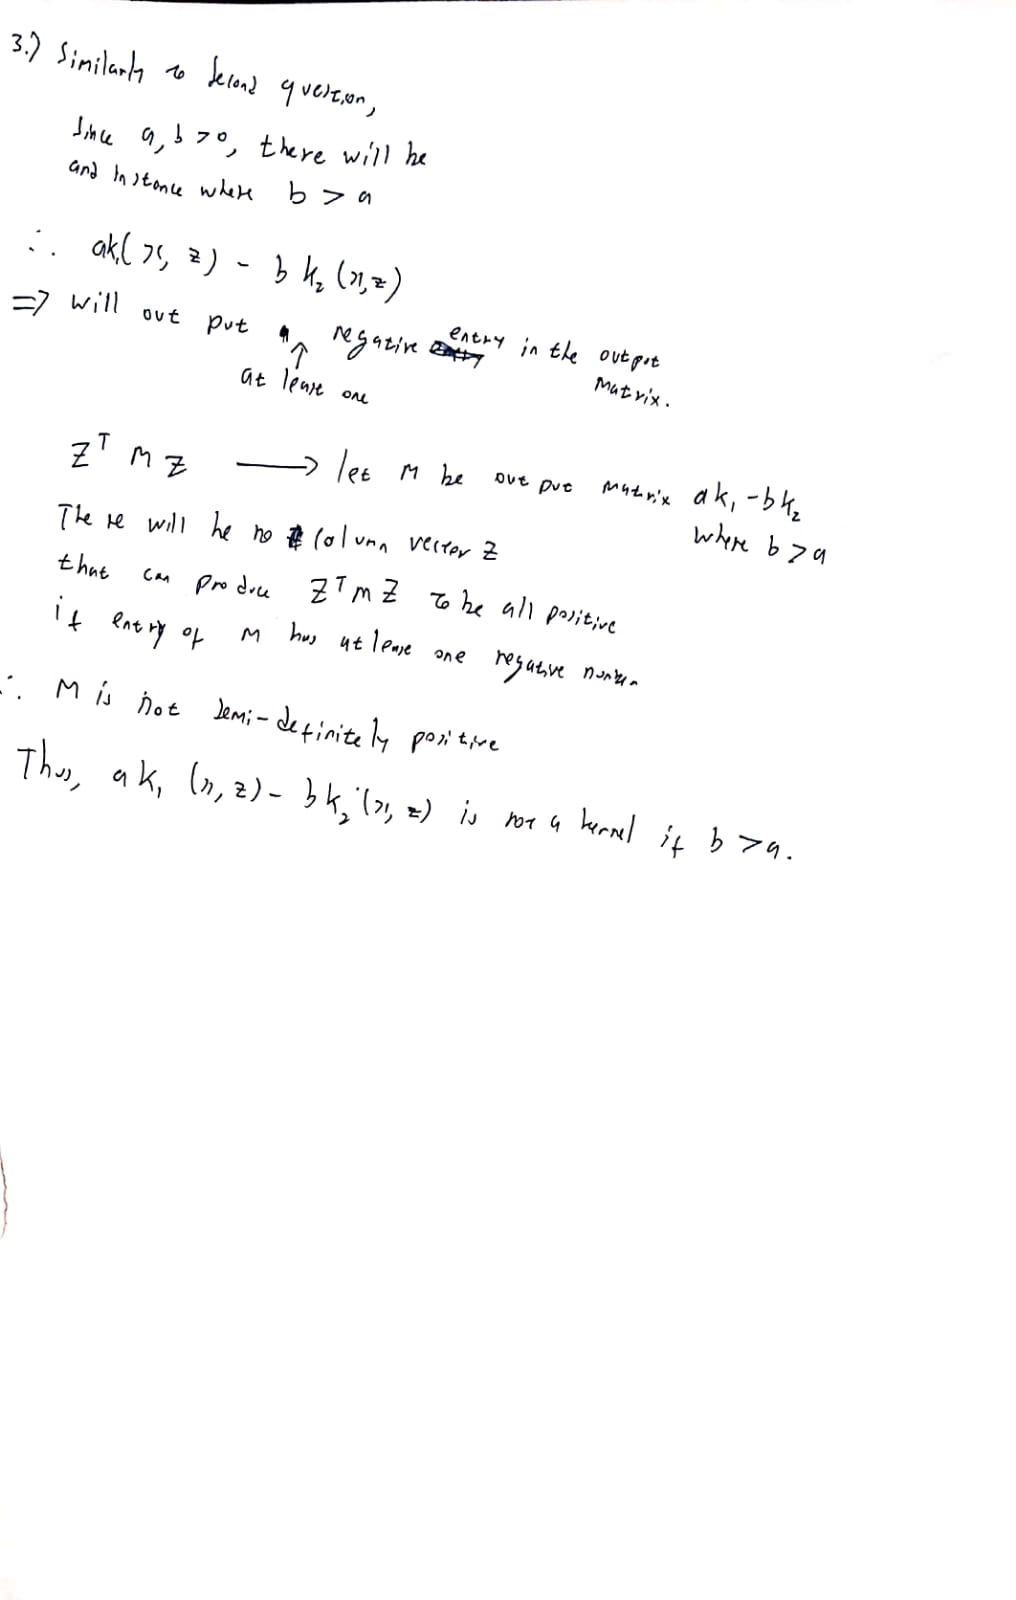 3.) Similarly to second question,
Since a, b > 0, there will be
and instance where b > a
∴ ak₁(x, z) - b k₂ (x, z)
=> will out put a negative entry in the output
↑
at lease one
matrix.
Zᵀ M Z ⟶ let M be out put matrix ak₁ - bk₂
where b > a
There will be no column vector Z
that can produce Zᵀ M Z to be all positive
if entry of M has at lease one negative number
∴ M is not semi-definitely positive
Thus, a k₁ (x, z) - b k₂ (x, z) is not a kernel if b > a.